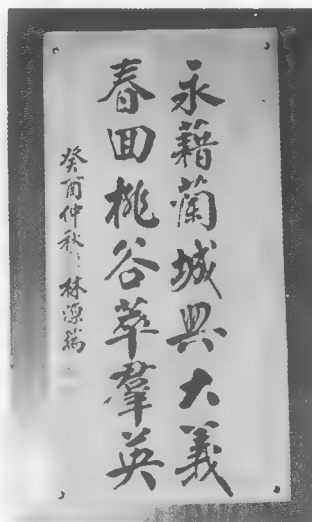 永藉蘭城興大義
春回桃谷萃羣英
癸酉仲秋林源瑞